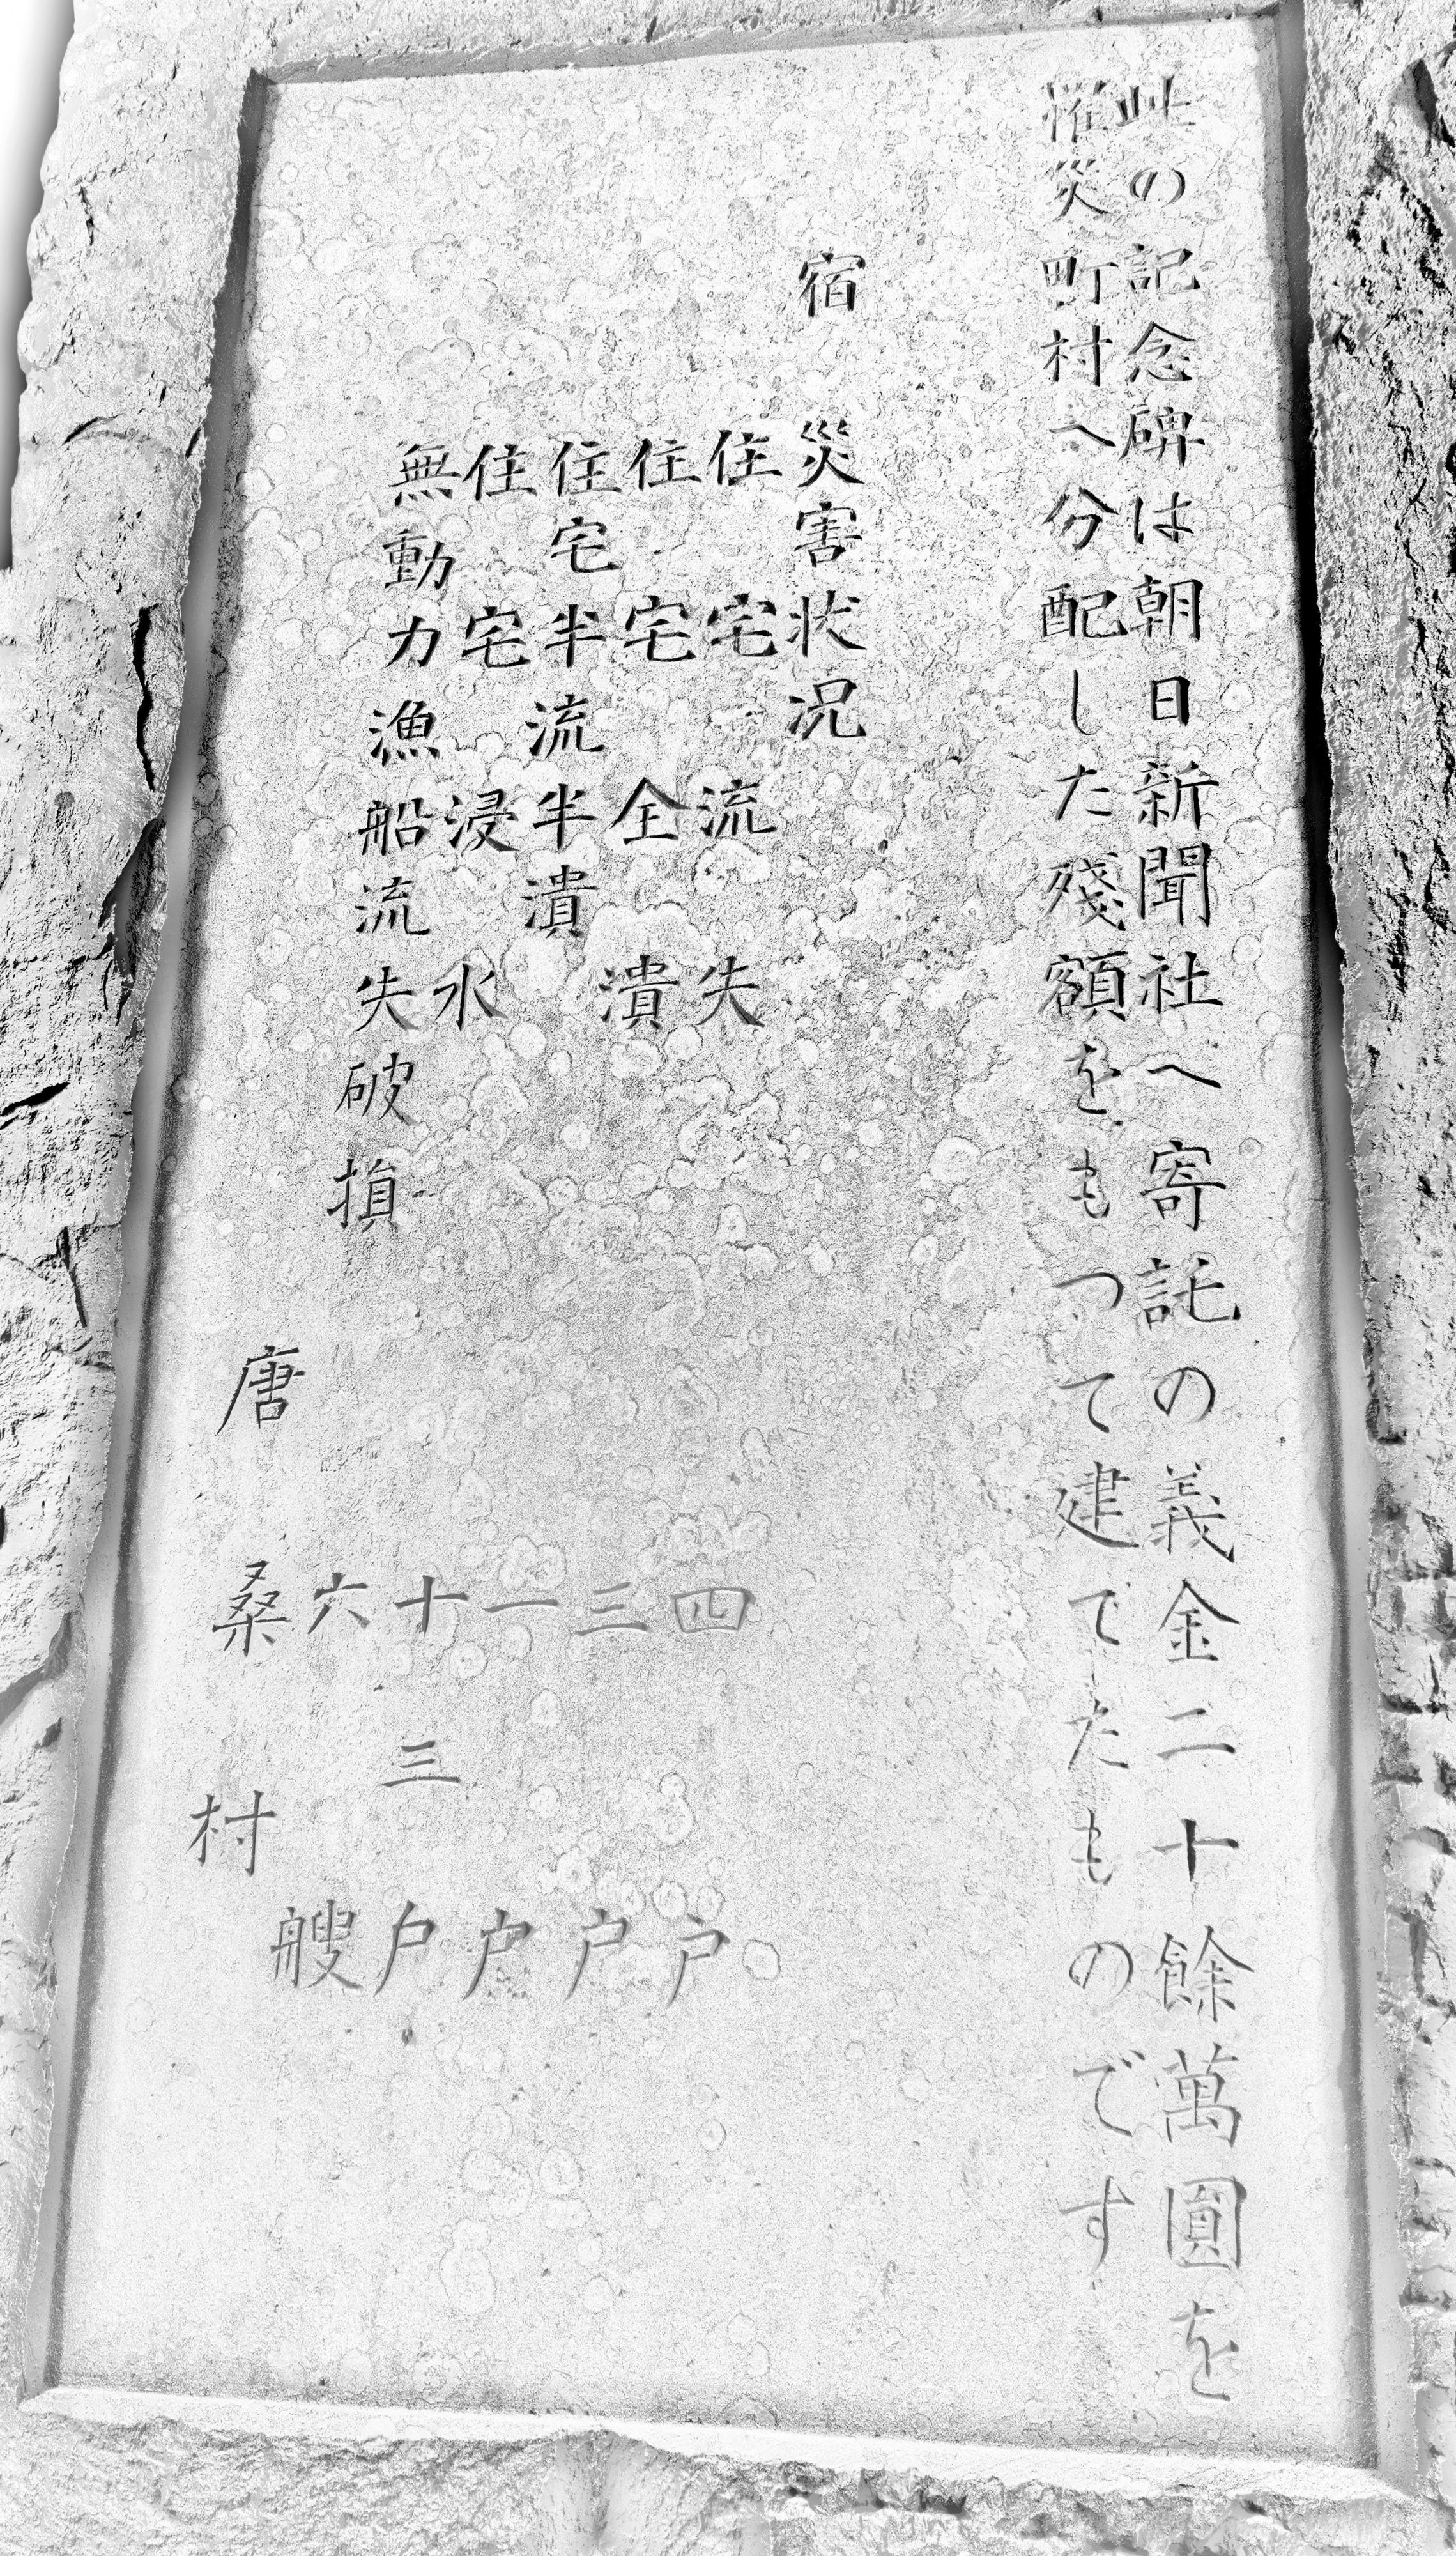 此の記念碑は朝日新聞社へ寄託の義金二十餘萬圓を
罹災町村へ分配した殘額をもつて建てたものです
宿 災害状況
住宅流失 四戸
住宅全潰 三戸
住宅半流半潰 一戸
住宅浸水 十三戸
無動力漁船流失破損 六艘
唐桑村